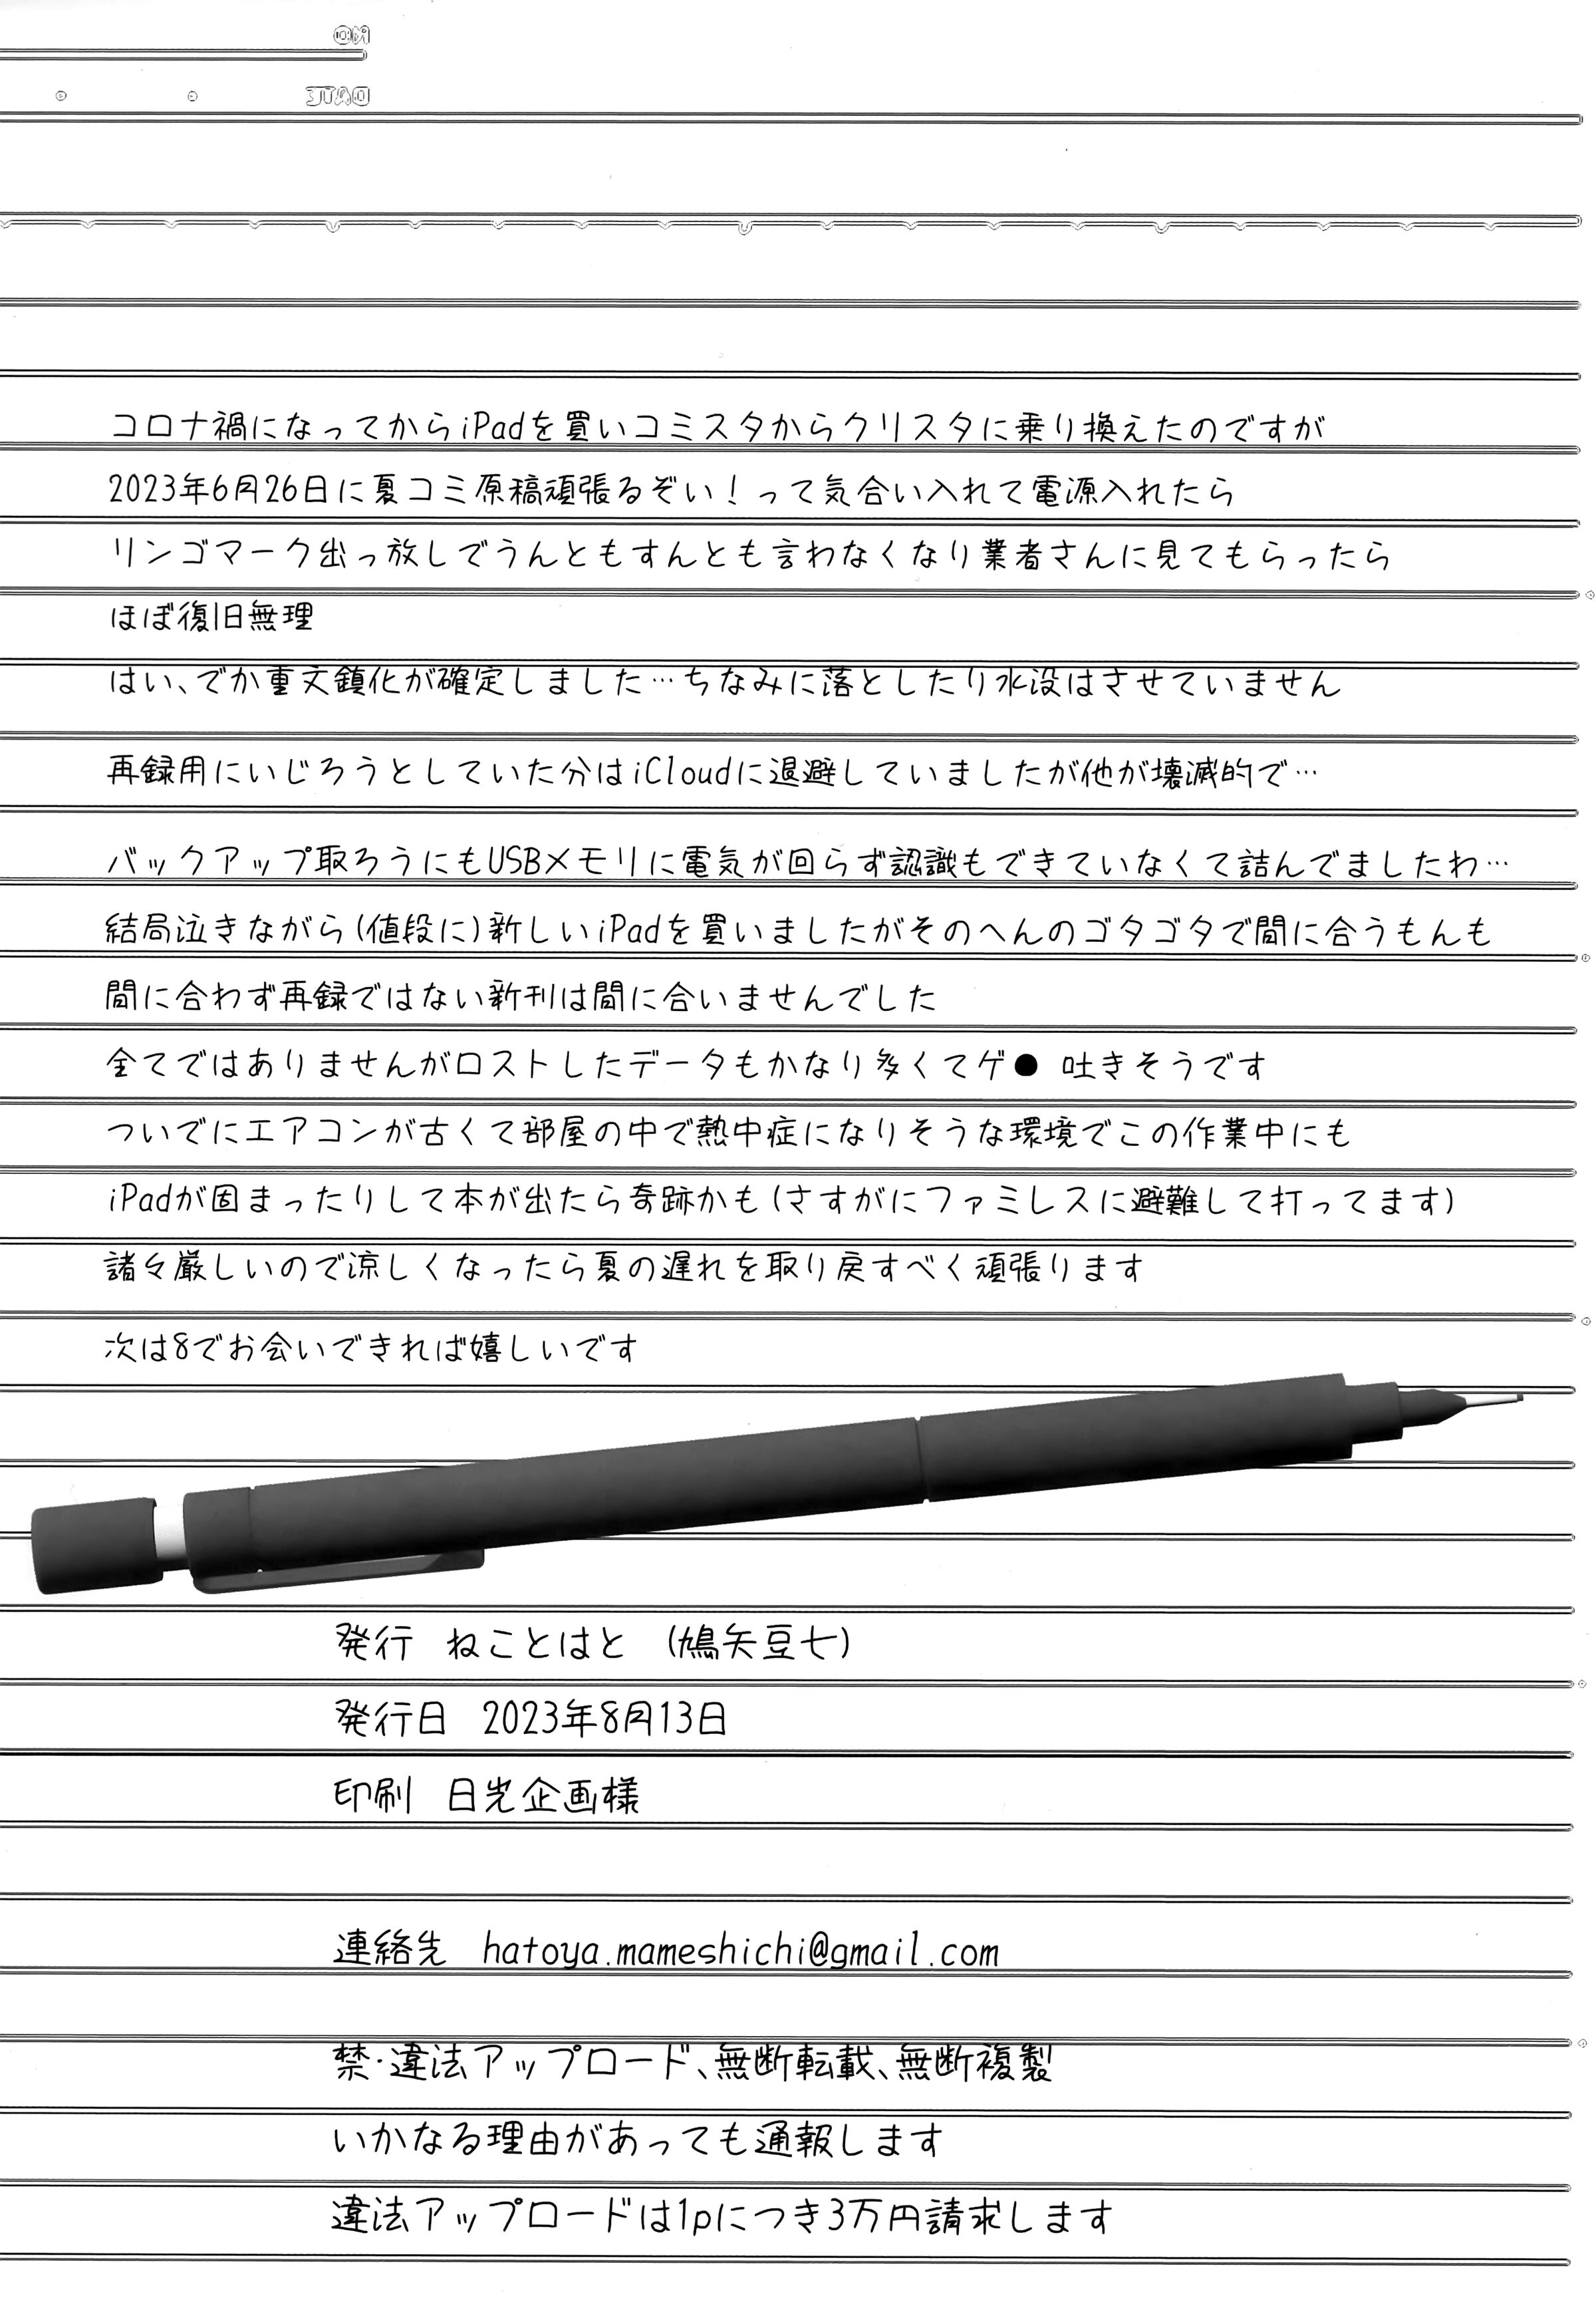 NO
DATE
コロナ禍になってからiPadを買いコミスタからクリスタに乗り換えたのですが
2023年6月26日に夏コミ原稿頑張るぞい！って気合い入れて電源入れたら
リンゴマーク出っ放しでうんともすんとも言わなくなり業者さんに見てもらったら
ほぼ復旧無理
はい、でか重文鎮化が確定しました…ちなみに落としたり水没はさせていません
再録用にいじろうとしていた分はiCloudに退避していましたが他が壊滅的で…
バックアップ取ろうにもUSBメモリに電気が回らず認識もできていなくて詰んでましたわ…
結局泣きながら(値段に)新しいiPadを買いましたがそのへんのゴタゴタで間に合うもんも
間に合わず再録ではない新刊は間に合いませんでした
全てではありませんがロストしたデータもかなり多くてゲ● 吐きそうです
ついでにエアコンが古くて部屋の中で熱中症になりそうな環境でこの作業中にも
iPadが固まったりして本が出たら奇跡かも(さすがにファミレスに避難して打ってます)
諸々厳しいので涼しくなったら夏の遅れを取り戻すべく頑張ります
次は8でお会いできれば嬉しいです
発行 ねことはと (鳩矢豆七)
発行日 2023年8月13日
印刷 日光企画様
連絡先 hatoya.mameshichi@gmail.com
禁・違法アップロード、無断転載、無断複製
いかなる理由があっても通報します
違法アップロードは1pにつき3万円請求します